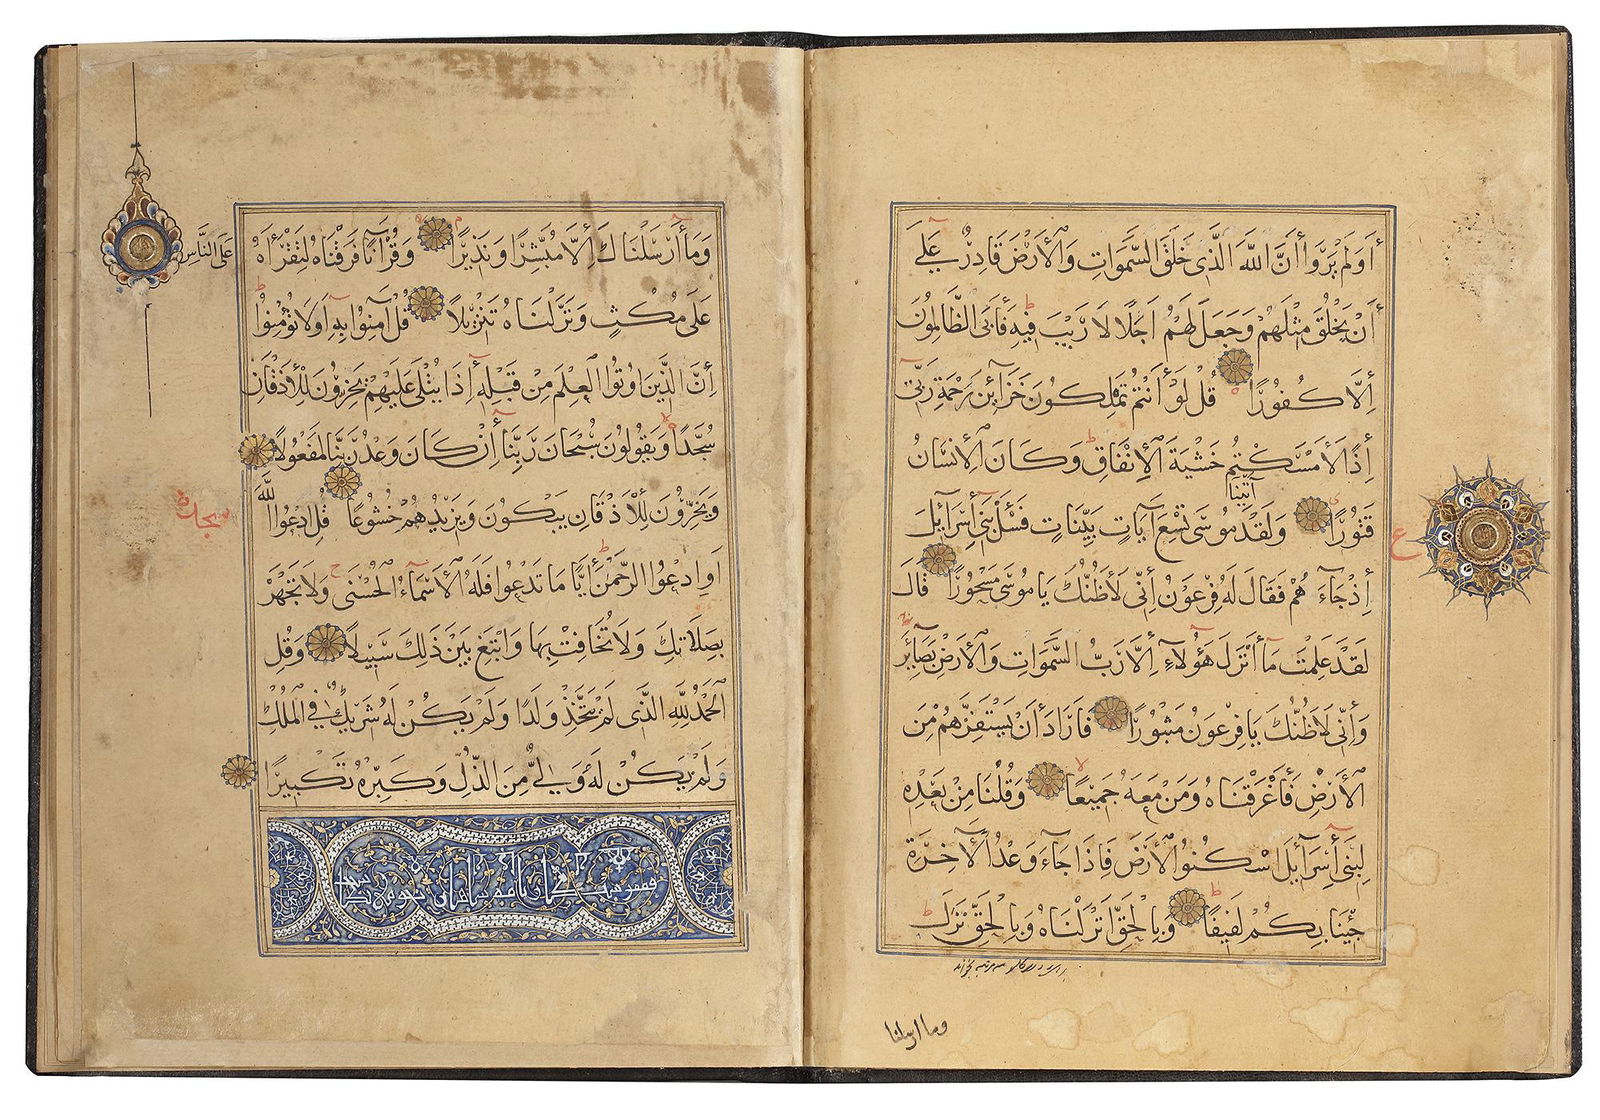 أَوَلَمْ يَرَوْا أَنَّ اللَّهَ الَّذِي خَلَقَ السَّمَوَاتِ وَالْأَرْضَ قَادِرٌ عَلَى
أَنْ يَخْلُقَ مِثْلَهُمْ وَجَعَلَ لَهُمْ أَجَلًا لَا رَيْبَ فِيهِ فَأَبَى الظَّالِمُونَ
إِلَّا كُفُورًا قُلْ لَوْ أَنْتُمْ تَمْلِكُونَ خَزَآئِنَ رَحْمَةِ رَبِّي
إِذًا لَأَمْسَكْتُمْ خَشْيَةَ الْإِنْفَاقِ وَكَانَ الْإِنْسَانُ
قَتُورًا وَلَقَدْ آتَيْنَا مُوسَى تِسْعَ آيَاتٍ بَيِّنَاتٍ فَسْئَلْ بَنِي إِسْرَآئِيلَ
ع
إِذْ جَآءَهُمْ فَقَالَ لَهُ فِرْعَوْنُ إِنِّي لَأَظُنُّكَ يَا مُوسَى مَسْحُورًا قَالَ
لَقَدْ عَلِمْتَ مَآ أَنْزَلَ هَؤُلَآءِ إِلَّا رَبُّ السَّمَوَاتِ وَالْأَرْضِ بَصَآئِرَ
وَإِنِّي لَأَظُنُّكَ يَا فِرْعَوْنُ مَثْبُورًا فَأَرَادَ أَنْ يَسْتَفِزَّهُمْ مِنَ
الْأَرْضِ فَأَغْرَقْنَاهُ وَمَنْ مَعَهُ جَمِيعًا وَقُلْنَا مِنْ بَعْدِهِ
لِبَنِي إِسْرَآئِيلَ اسْكُنُوا الْأَرْضَ فَإِذَا جَآءَ وَعْدُ الْآخِرَةِ
جِئْنَا بِكُمْ لَفِيفًا وَبِالْحَقِّ أَنْزَلْنَاهُ وَبِالْحَقِّ نَزَلَ
وما ارسلنا
وَمَآ أَرْسَلْنَاكَ إِلَّا مُبَشِّرًا وَنَذِيرًا وَقُرْآنًا فَرَقْنَاهُ لِتَقْرَأَهُ
عَلَى النَّاسِ
عَلَى مُكْثٍ وَنَزَّلْنَاهُ تَنْزِيلًا قُلْ آمِنُوا بِهِ أَوْ لَا تُؤْمِنُوا
إِنَّ الَّذِينَ أُوتُوا الْعِلْمَ مِنْ قَبْلِهِ إِذَا يُتْلَى عَلَيْهِمْ يَخِرُّونَ لِلْأَذْقَانِ
سُجَّدًا وَيَقُولُونَ سُبْحَانَ رَبِّنَا إِنْ كَانَ وَعْدُ رَبِّنَا لَمَفْعُولًا
وَيَخِرُّونَ لِلْأَذْقَانِ يَبْكُونَ وَيَزِيدُهُمْ خُشُوعًا قُلِ ادْعُوا اللَّهَ
سجدة
أَوِ ادْعُوا الرَّحْمَنَ أَيًّا مَا تَدْعُوا فَلَهُ الْأَسْمَآءُ الْحُسْنَى وَلَا تَجْهَرْ
بِصَلَاتِكَ وَلَا تُخَافِتْ بِهَا وَابْتَغِ بَيْنَ ذَلِكَ سَبِيلًا وَقُلِ
الْحَمْدُ لِلَّهِ الَّذِي لَمْ يَتَّخِذْ وَلَدًا وَلَمْ يَكُنْ لَهُ شَرِيكٌ فِي الْمُلْكِ
وَلَمْ يَكُنْ لَهُ وَلِيٌّ مِنَ الذُّلِّ وَكَبِّرْهُ تَكْبِيرًا